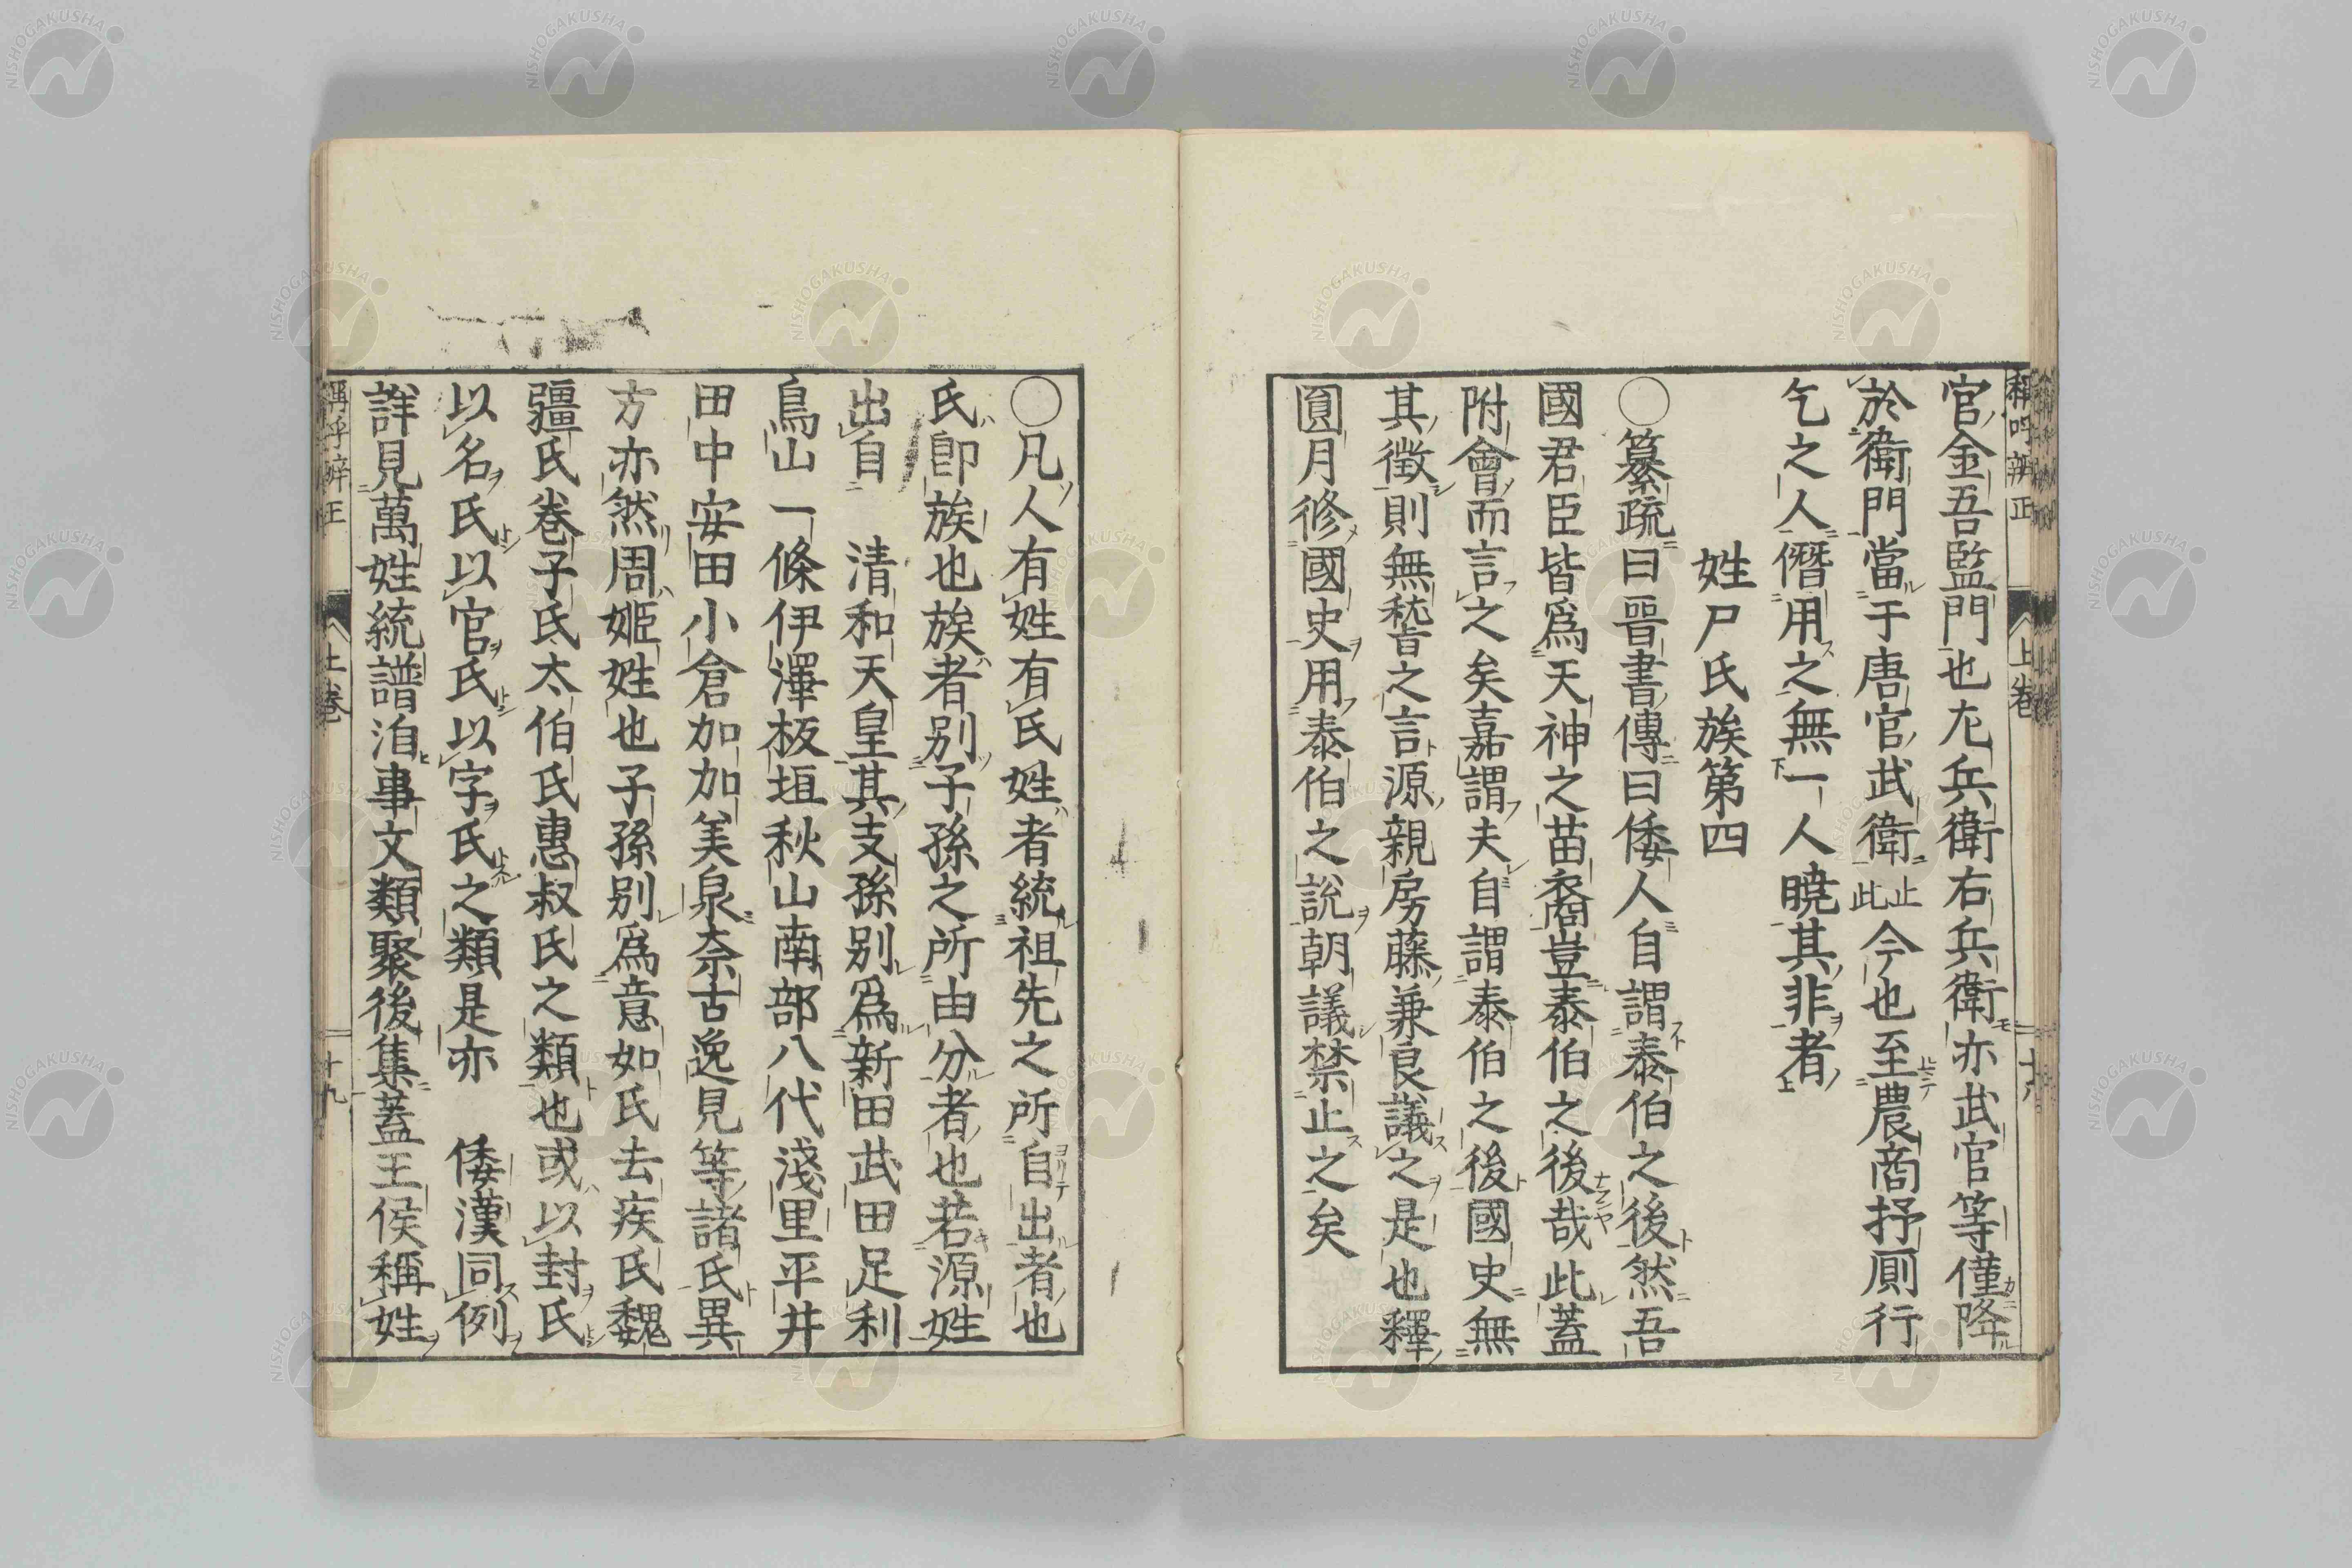 官金吾監門也尢兵衛右兵衛亦武官等僅降
於衛門當于唐官武衛止此今也至農商抒厠行
乞之人僭用之無一人曉其非者
姓尸氏族第四
○纂疏曰晉書傳曰倭人自謂泰伯之後然吾
國君臣皆爲天神之苗裔豈泰伯之後哉此蓋
附會而言之矣嘉謂夫自謂泰伯之後國史無
其徴則無稽之言源親房藤兼良議之是也釋
圓月修國史用泰伯之説朝議禁止之矣
○凡人有姓有氏姓者統祖先之所自出者也
氏即族也族者別子孫之所由分者也若源姓
出自 清和天皇其支孫別爲新田武田足利
鳥山一條伊澤板垣秋山南部八代淺里平井
田中安田小倉加加美泉奈古逸見等諸氏異
方亦然周姬姓也子孫別爲意如氏去疾氏魏
疆氏巷子氏太伯氏惠叔氏之類也或以封氏
以名氏以官氏以字氏之類是亦 倭漢同例
詳見萬姓統譜洎事文類聚後集蓋王侯稱姓
稱呼辨正 上卷 十九